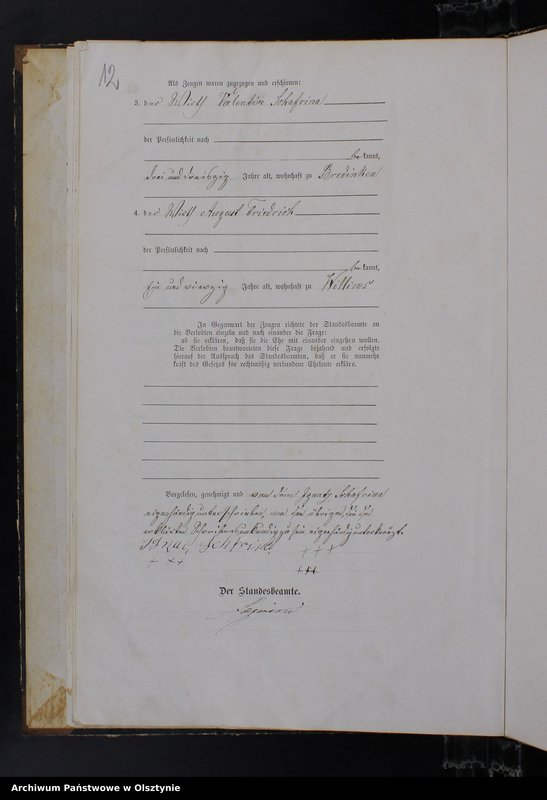 12
Als Zeugen waren zugezogen und erschienen:
3. der Wirth Valentin Schafrina
der Persönlichkeit nach
be kannt,
drei und dreißzig Jahre alt, wohnhaft zu Bredinken
4. der Wirth August Friedrich
der Persönlichkeit nach
be kannt,
ein und vierzig Jahre alt, wohnhaft zu Willims
In Gegenwart der Zeugen richtete der Standesbeamte an
die Verlobten einzeln und nach einander die Frage:
ob sie erklären, daß sie die Ehe mit einander eingehen wollen.
Die Verlobten beantworteten diese Frage bejahend und erfolgte
hierauf der Ausspruch des Standesbeamten, daß er sie nunmehr
kraft des Gesetzes für rechtmäßig verbundene Eheleute erkläre.
Vorgelesen, genehmigt und von dem Ignatz Schafrina
eigenhändig unterschrieben, von den übrigen, da sie
erklärten Schreibensunkundig zu sein eigenhändig unterkreuzt.
+++
+++
+++
Der Standesbeamte.
Archiwum Państwowe w Olsztynie